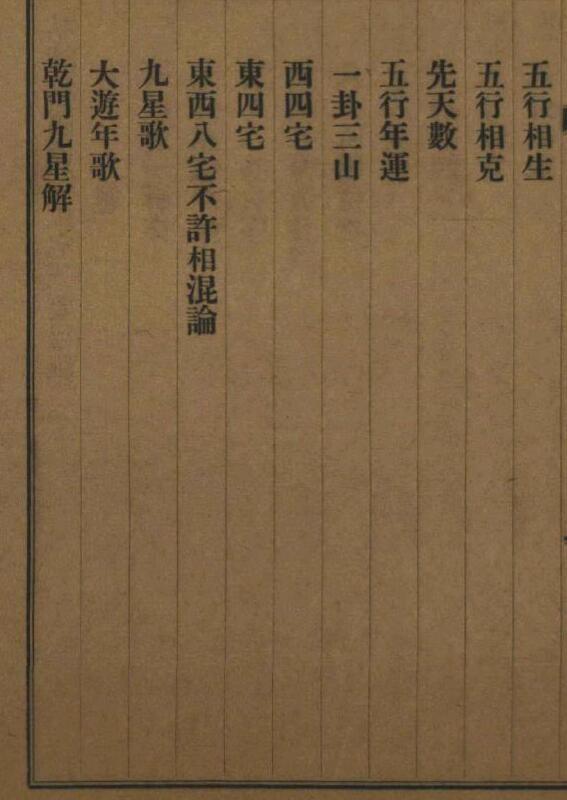 五行相生
五行相克
先天數
五行年運
一卦三山
西四宅
東四宅
東西八宅不許相混論
九星歌
大遊年歌
乾門九星解